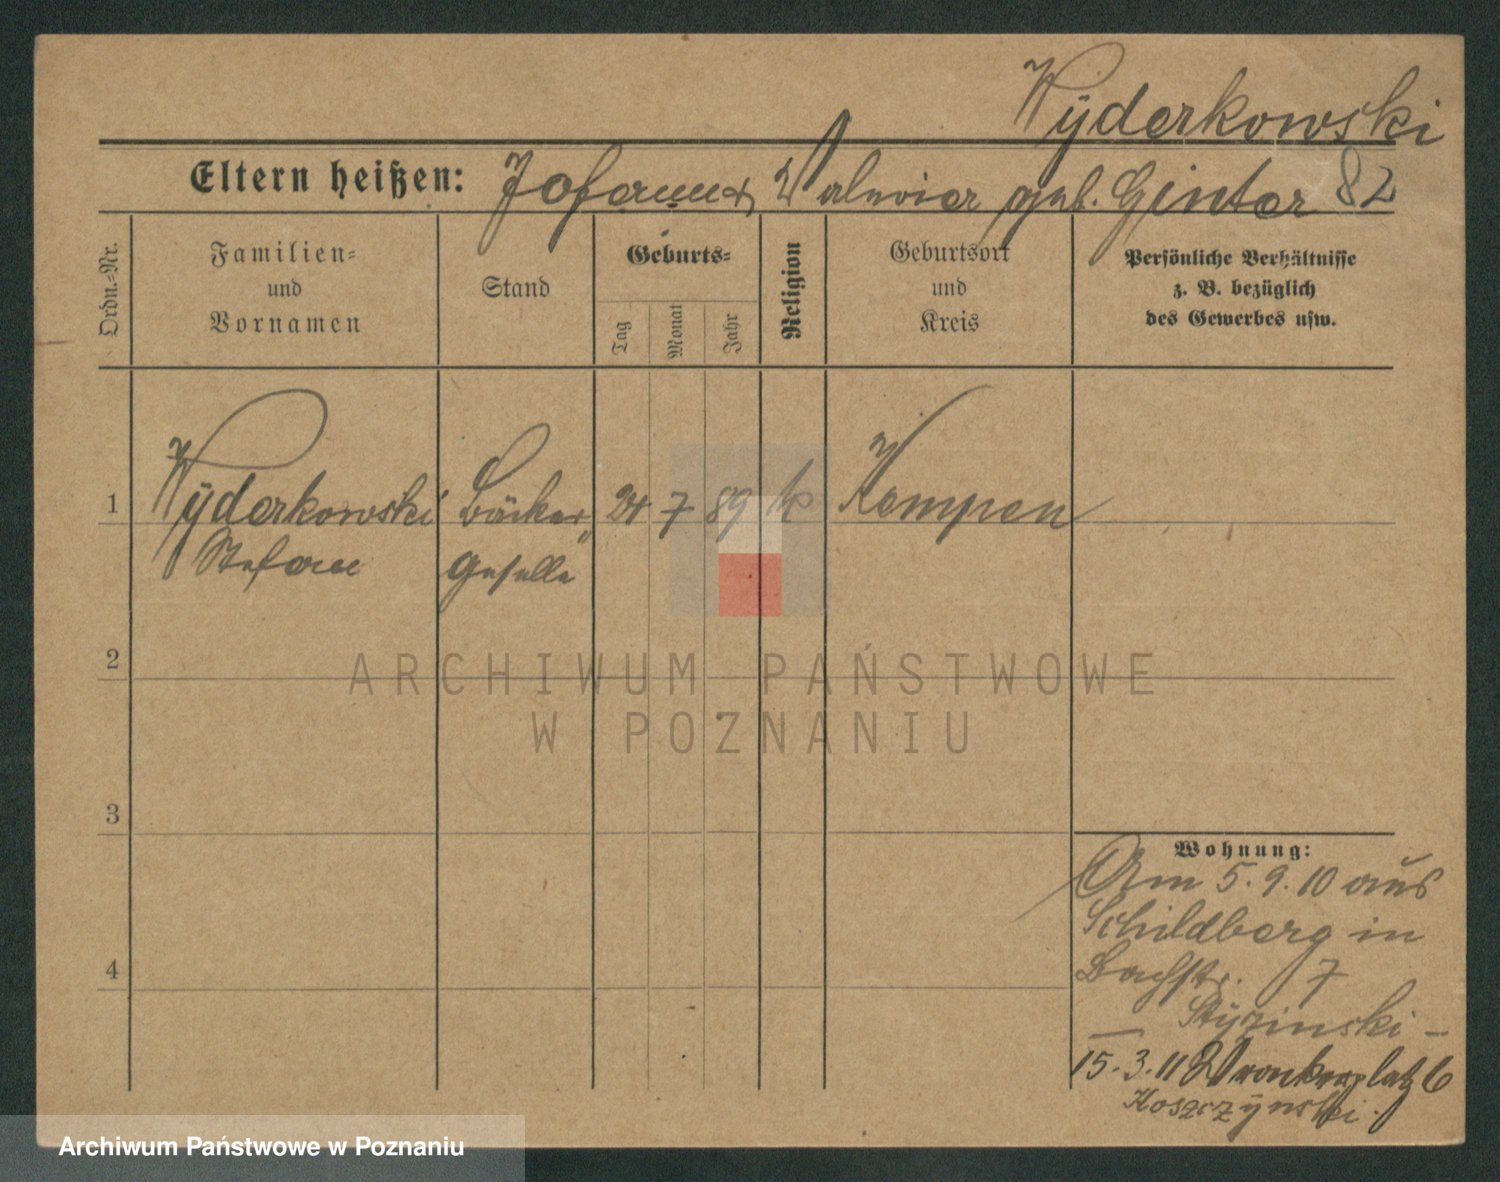 Wÿderkowski
Eltern heißen: Johann & geb. Ginter 82
Ordn.-Nr.
Familien-
und
Vornamen
Stand
Geburts-
Tag
Monat
Jahr
Religion
Geburtsort
und
Kreis
Persönliche Verhältnisse
z. B. bezüglich
des Gewerbes usw.
1 Wÿderkowski Bäcker 24 7 89 k Kempen
Stefan geselle
2
3
4
Wohnung:
Am 5. 9. 10 aus
Schildberg in
Bachstr. 7
Stÿzinski –
15. 3. 11 Wronkerplatz 6
Koszczÿnski.
ARCHIWUM PAŃSTWOWE
W POZNANIU
Archiwum Państwowe w Poznaniu